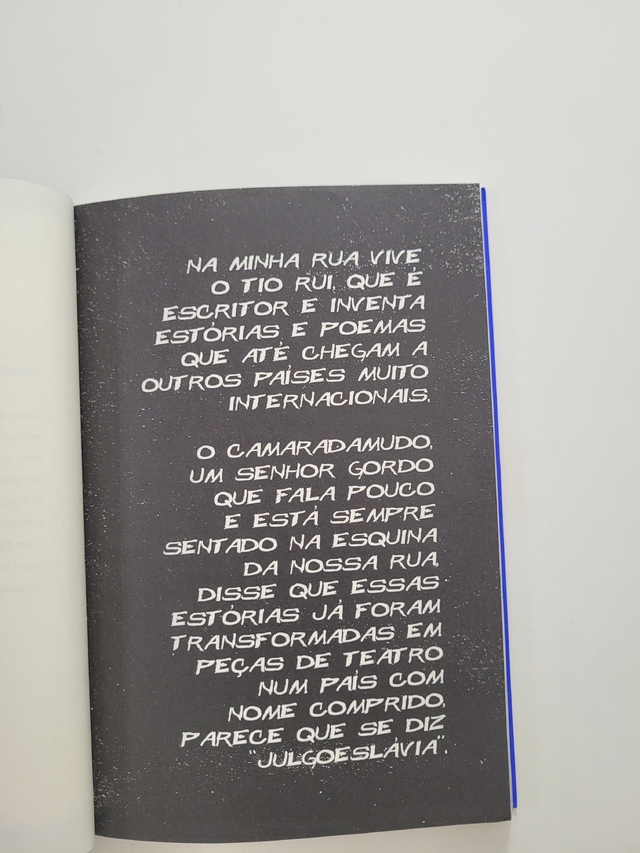 NA MINHA RUA VIVE
O TIO RUI, QUE É
ESCRITOR E INVENTA
ESTÓRIAS E POEMAS
QUE ATÉ CHEGAM A
OUTROS PAÍSES MUITO
INTERNACIONAIS.
O CAMARADAMUDO,
UM SENHOR GORDO
QUE FALA POUCO
E ESTÁ SEMPRE
SENTADO NA ESQUINA
DA NOSSA RUA,
DISSE QUE ESSAS
ESTÓRIAS JÁ FORAM
TRANSFORMADAS EM
PEÇAS DE TEATRO
NUM PAÍS COM
NOME COMPRIDO,
PARECE QUE SE DIZ
"JULGOESLÁVIA".